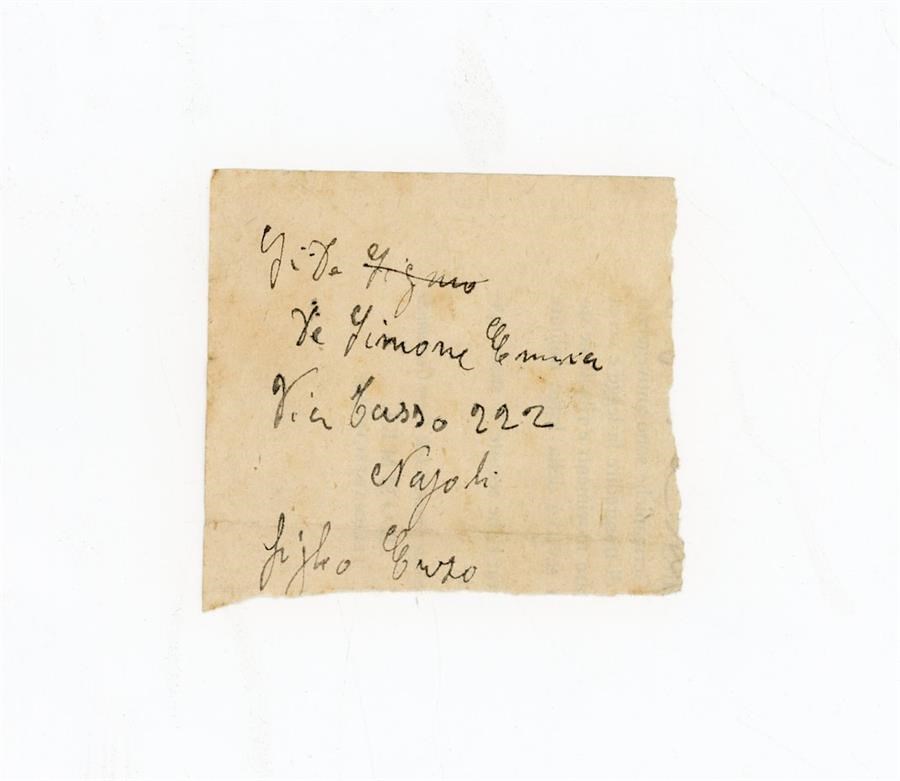 Si De
De Simone Emma
Via Tasso 222
Napoli
figlio Enzo